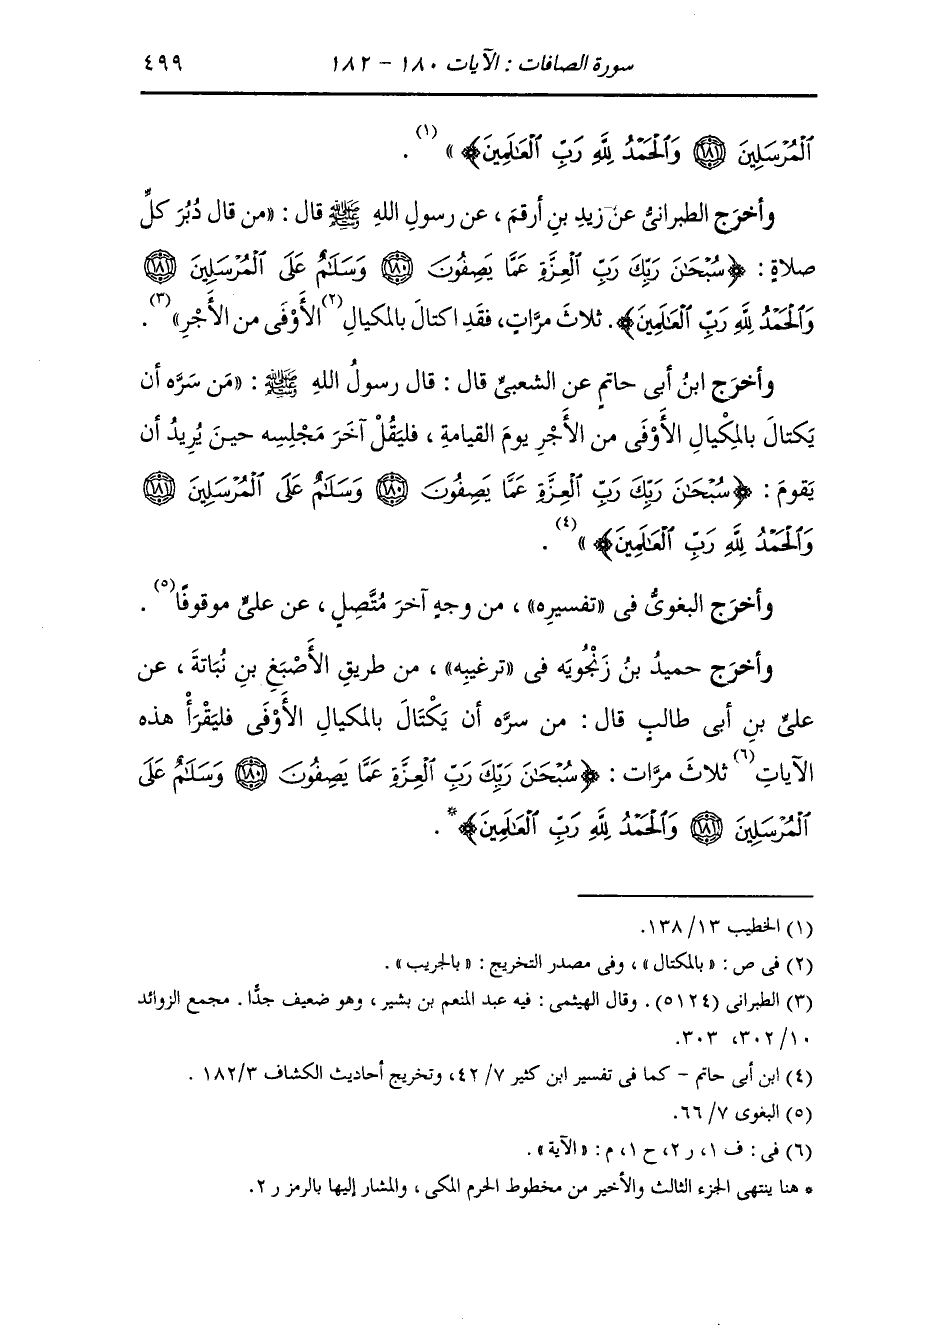 سورة الصافات : الآيات ١٨٠ - ١٨٢ ٤٩٩
ٱلْمُرْسَلِينَ ﴿١٨١﴾ وَٱلْحَمْدُ لِلَّهِ رَبِّ ٱلْعَٰلَمِينَ﴾ » (١) .
وأخرَج الطبرانىُّ عن زيدِ بنِ أرقمَ ، عن رسولِ اللهِ ﷺ قال : «من قال دُبُرَ كلِّ
صلاةٍ : ﴿سُبْحَٰنَ رَبِّكَ رَبِّ ٱلْعِزَّةِ عَمَّا يَصِفُونَ ﴿١٨٠﴾ وَسَلَٰمٌ عَلَى ٱلْمُرْسَلِينَ ﴿١٨١﴾
وَٱلْحَمْدُ لِلَّهِ رَبِّ ٱلْعَٰلَمِينَ﴾. ثلاثَ مرَّاتٍ، فقَدِ اكتالَ بالمكيالِ(٢) الأَوْفَى من الأَجْرِ»(٣) .
وأخرَج ابنُ أبى حاتمٍ عن الشعبىِّ قال : قال رسولُ اللهِ ﷺ : «مَن سَرَّه أن
يَكتالَ بالمِكْيالِ الأَوْفَى من الأَجْرِ يومَ القيامةِ ، فليَقُلْ آخَرَ مَجْلِسِه حينَ يُرِيدُ أن
يَقومَ : ﴿سُبْحَٰنَ رَبِّكَ رَبِّ ٱلْعِزَّةِ عَمَّا يَصِفُونَ ﴿١٨٠﴾ وَسَلَٰمٌ عَلَى ٱلْمُرْسَلِينَ ﴿١٨١﴾
وَٱلْحَمْدُ لِلَّهِ رَبِّ ٱلْعَٰلَمِينَ﴾ » (٤) .
وأخرَج البغوىُّ فى «تفسيرِه» ، من وجهٍ آخرَ مُتَّصِلٍ ، عن علىٍّ موقوفًا(٥) .
وأخرَج حميدُ بنُ زَنْجُويَه فى «ترغيبِه» ، من طريقِ الأَصْبَغِ بنِ نُبَاتةَ ، عن
علىِّ بنِ أبى طالبٍ قال : من سرَّه أن يَكْتَالَ بالمكيالِ الأَوْفَى فليَقْرَأْ هذه
الآياتِ(٦) ثلاثَ مرَّات : ﴿سُبْحَٰنَ رَبِّكَ رَبِّ ٱلْعِزَّةِ عَمَّا يَصِفُونَ ﴿١٨٠﴾ وَسَلَٰمٌ عَلَى
ٱلْمُرْسَلِينَ ﴿١٨١﴾ وَٱلْحَمْدُ لِلَّهِ رَبِّ ٱلْعَٰلَمِينَ﴾* .
(١) الخطيب ١٣/ ١٣٨.
(٢) فى ص : « بالمكتال » ، وفى مصدر التخريج : « بالجريب » .
(٣) الطبرانى (٥١٢٤) . وقال الهيثمى : فيه عبد المنعم بن بشير ، وهو ضعيف جدًّا . مجمع الزوائد
١٠/ ٣٠٢، ٣٠٣.
(٤) ابن أبى حاتم - كما فى تفسير ابن كثير ٧/ ٤٢، وتخريج أحاديث الكشاف ٣/ ١٨٢ .
(٥) البغوى ٧/ ٦٦.
(٦) فى : ف ١، ر ٢، ح ١، م : « الآية » .
* هنا ينتهى الجزء الثالث والأخير من مخطوط الحرم المكى ، والمشار إليها بالرمز ر ٢.